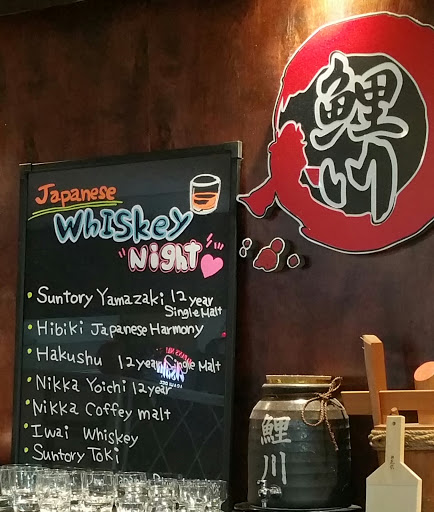 鯉川
Japanese
Whiskey
Night
Suntory Yamazaki 12 year
Single Malt
Hibiki Japanese Harmony
Hakushu 12 year Single Malt
Nikka Yoichi 12 year
Nikka Coffey malt
Iwai Whiskey
Suntory Toki
鯉川